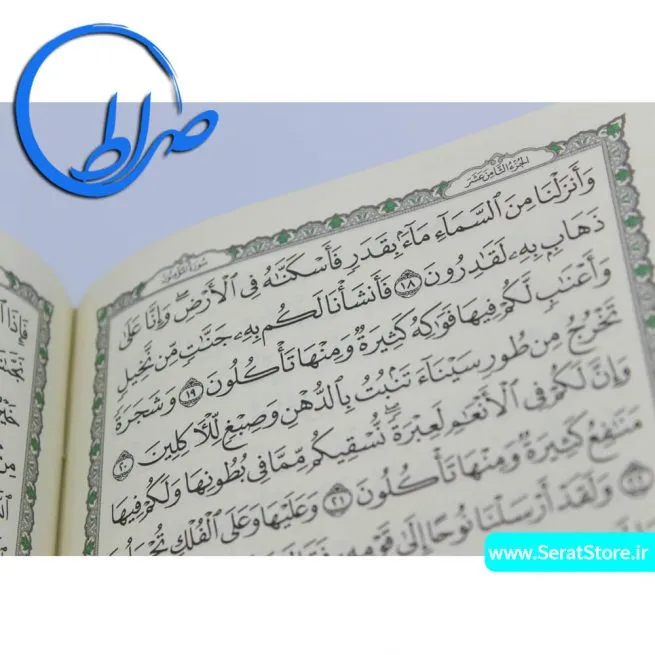 صراط
الجزء الثامن عشر
سورة المؤمنون
وَأَنزَلْنَا مِنَ السَّمَاءِ مَاءً بِقَدَرٍ فَأَسْكَنَّاهُ فِي الْأَرْضِ وَإِنَّا عَلَىٰ
ذَهَابٍ بِهِ لَقَادِرُونَ ١٨ فَأَنشَأْنَا لَكُم بِهِ جَنَّاتٍ مِّن نَّخِيلٍ
وَأَعْنَابٍ لَّكُمْ فِيهَا فَوَاكِهُ كَثِيرَةٌ وَمِنْهَا تَأْكُلُونَ ١٩ وَشَجَرَةً
تَخْرُجُ مِن طُورِ سَيْنَاءَ تَنبُتُ بِالدُّهْنِ وَصِبْغٍ لِّلْآكِلِينَ ٢٠
وَإِنَّ لَكُمْ فِي الْأَنْعَامِ لَعِبْرَةً نُّسْقِيكُم مِّمَّا فِي بُطُونِهَا وَلَكُمْ فِيهَا
مَنَافِعُ كَثِيرَةٌ وَمِنْهَا تَأْكُلُونَ ٢١ وَعَلَيْهَا وَعَلَى الْفُلْكِ تُحْمَلُونَ
٢٢ وَلَقَدْ أَرْسَلْنَا نُوحًا إِلَىٰ قَوْمِهِ
www.SeratStore.ir